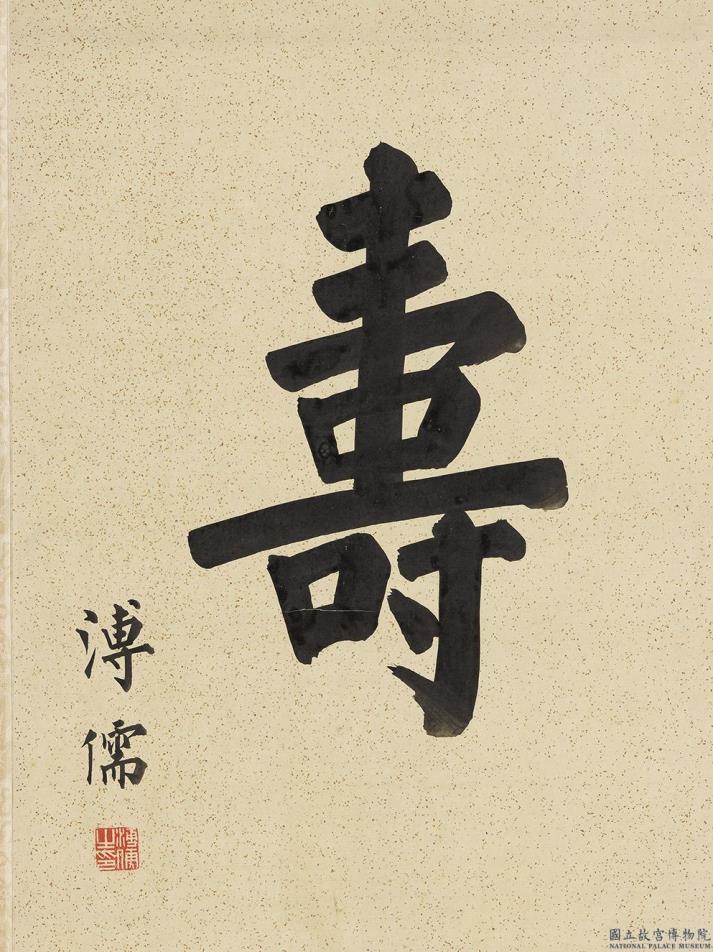 壽
溥儒
溥儒之印
國立故宮博物院
NATIONAL PALACE MUSEUM